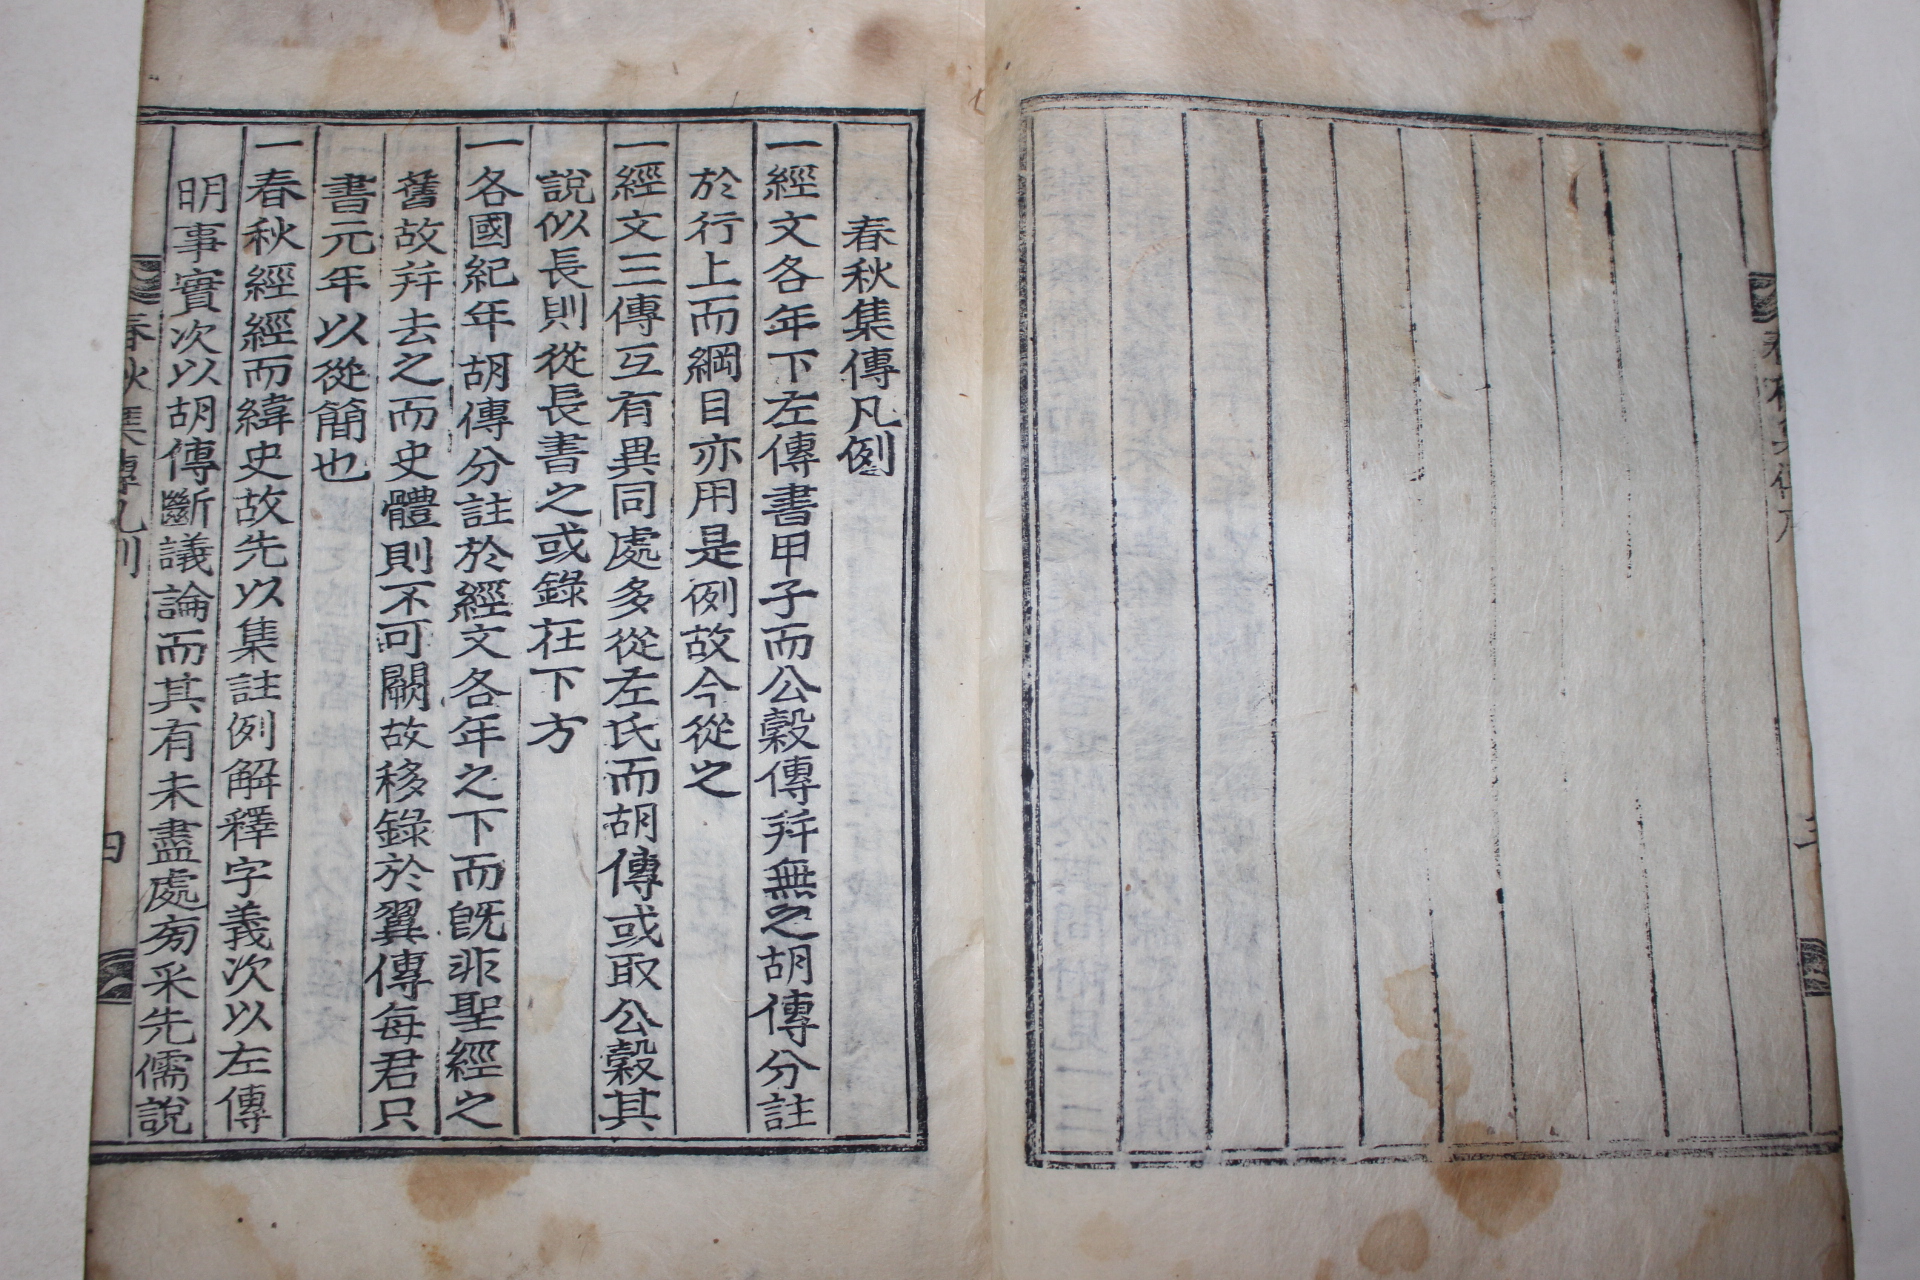 春秋集傳凡例
一經文各年下左傳書甲子而公穀傳并無之胡傳分註
於行上而綱目亦用是例故今從之
一經文三傳互有異同處多從左氏而胡傳或取公穀其
說似長則從長書之或錄在下方
一各國紀年胡傳分註於經文各年之下而旣非聖經之
舊故并去之而史體則不可闕故移錄於翼傳每君只
書元年以從簡也
一春秋經經而緯史故先以集註例解釋字義次以左傳
明事實次以胡傳斷議論而其有未盡處旁采先儒說
春秋集傳凡例
四